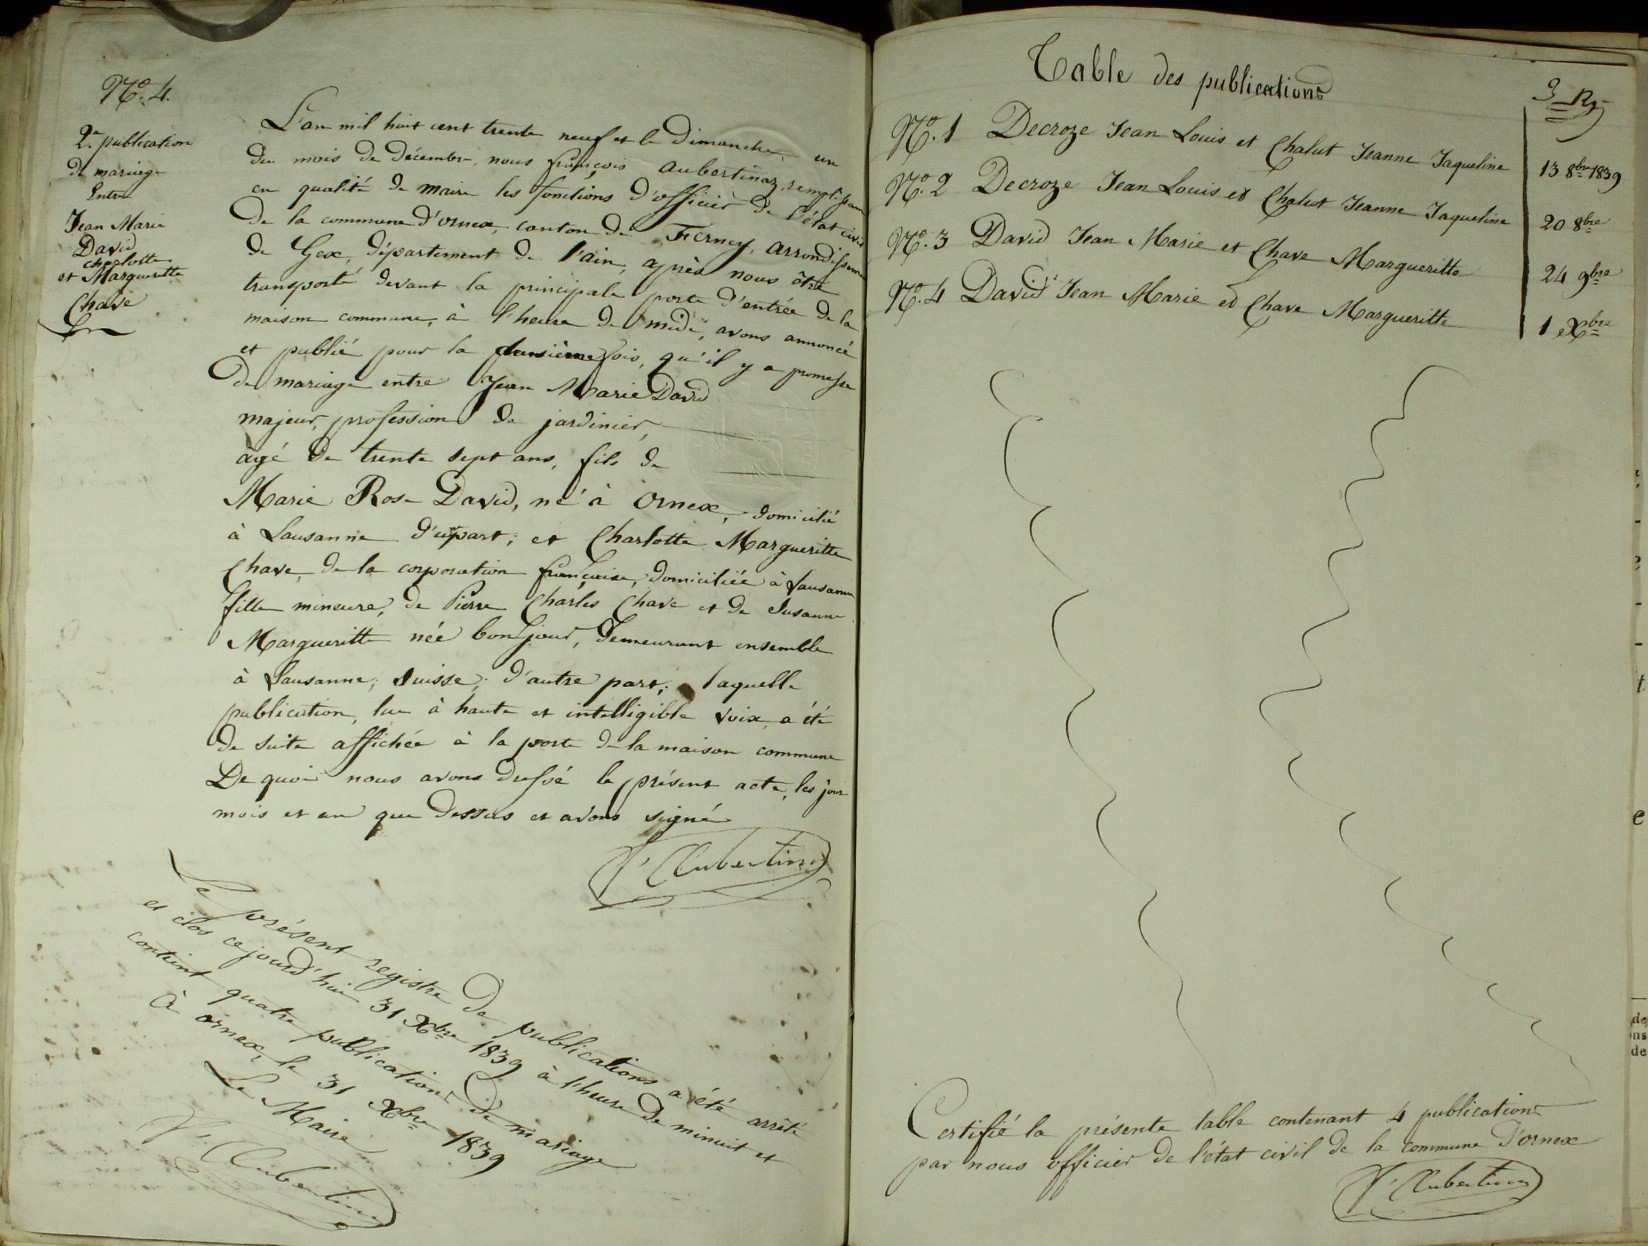 No. 4.
2e publication
de mariage
Entre
Jean Marie
David
charlotte
et Margueritte
Chave
L'an mil huit cent trente neuf et le Dimanche un
du mois de décembre, nous françois aubertinaz, remplissant
en qualité de maire les fonctions d'officier de l'état civil
de la commune d'ornex, canton de Ferney, arrondissement
de Gex, département de l'ain, après nous être
transporté devant la principale porte d'entrée de la
maison commune, à l'heure de midi, avons annoncé
et publié pour la deusième fois, qu'il y a promesse
de mariage entre Jean Marie David
majeur, profession de jardinier,
âgé de trente sept ans, fils de
Marie Rose David, né à Ornex, domicilié
à Lausanne d'une part; et Charlotte Margueritte
Chave, de la corporation française, domiciliée à Lausanne
fille mineure, de Pierre Charles Chave et de Susanne
Margueritte née bonjour, demeurant ensemble
à Lausanne, Suisse, d'autre part; laquelle
publication, lue à haute et intelligible voix, a été
de suite affichée à la porte de la maison commune
De quoi nous avons dressé le présent acte, les jour
mois et an que dessus et avons signé
Le présent registre de publications a été arrêté
et clos cejourd'hui 31 Xbre 1839 à l'heure de minuit et
contient quatre publications de mariage
à ornex, le 31 Xbre 1839
Le Maire
Table des publications
No. 1 Decroze Jean Louis et Chalut Jeanne Jaqueline 13 8bre 1839
No. 2 Decroze Jean Louis et Chalut Jeanne Jaqueline 20 8bre
No. 3 David Jean Marie et Chave Margueritte 24 9bre
No. 4 David Jean Marie et Chave Margueritte 1 Xbre
Certifié la présente table contenant 4 publications
par nous officier de l'état civil de la commune d'ornex